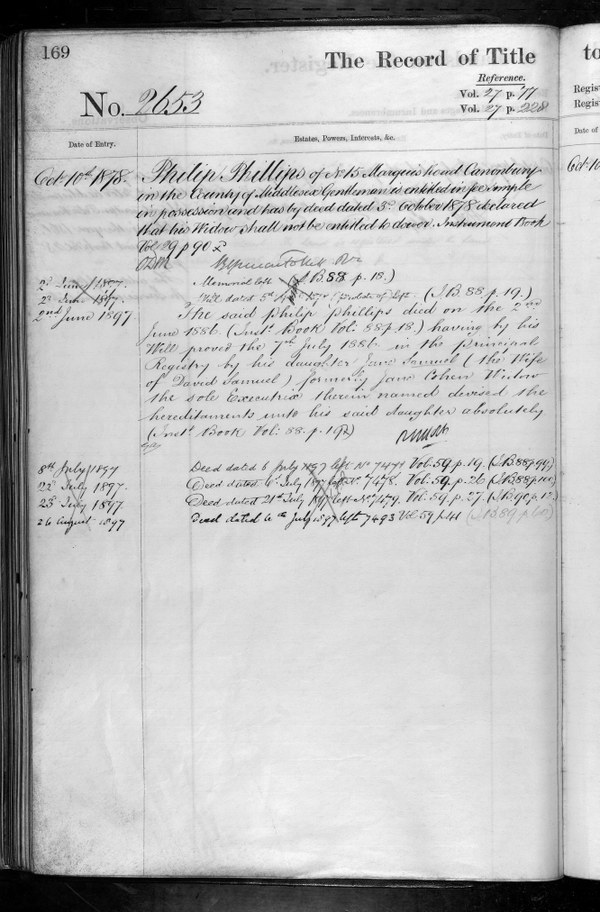 169
The Record of Title
Reference.
No. 2653
Vol. 27 p. 77
Vol. 27 p. 228
Date of Entry.
Estates, Powers, Interests, &c.
Oct 10th 1878.
Philip Phillips of No 15 Marquis road Canonbury
in the County of Middlesex Gentleman is entitled in fee simple
in possession and has by deed dated 3rd October 1878 declared
that his Widow shall not be entitled to dower. Instrument Book
Vol. 29 p 90
2d June 1897.
Memorial left (I.B. 88 p. 18.)
2d June 1897.
Will dated 5th Probate of left (I.B. 88 p. 19.)
2nd June 1897
The said Philip Phillips died on the 2nd
June 1886. (Inst. Book Vol: 88 p. 18) having by his
Will proved the 7th July 1886 in the Principal
Registry by his daughter Jane Samuel (the Wife
of David Samuel) formerly Jane Cohen Widow
the sole Executrix therein named devised the
hereditaments unto his said daughter absolutely
(Inst. Book Vol: 88. p. 19)
8th July 1897
Deed dated 6 July 1897 left No 7474 Vol. 59 p. 19. (I.B. 88 p 99)
22d July 1897.
Deed dated July 1897 left No. 7478. Vol. 59. p. 26 (I.B. 88 p 100)
23d July 1897.
Deed dated 21st July 1897 left No 7479. Vol. 59. p. 27. (I.B. 90 p. 12)
26 August 1897
Deed dated 6th July 1897 left 7493 Vol 59 p 41 (I.B. 89 p
to
Regist
Regist
Date of
Oct 10